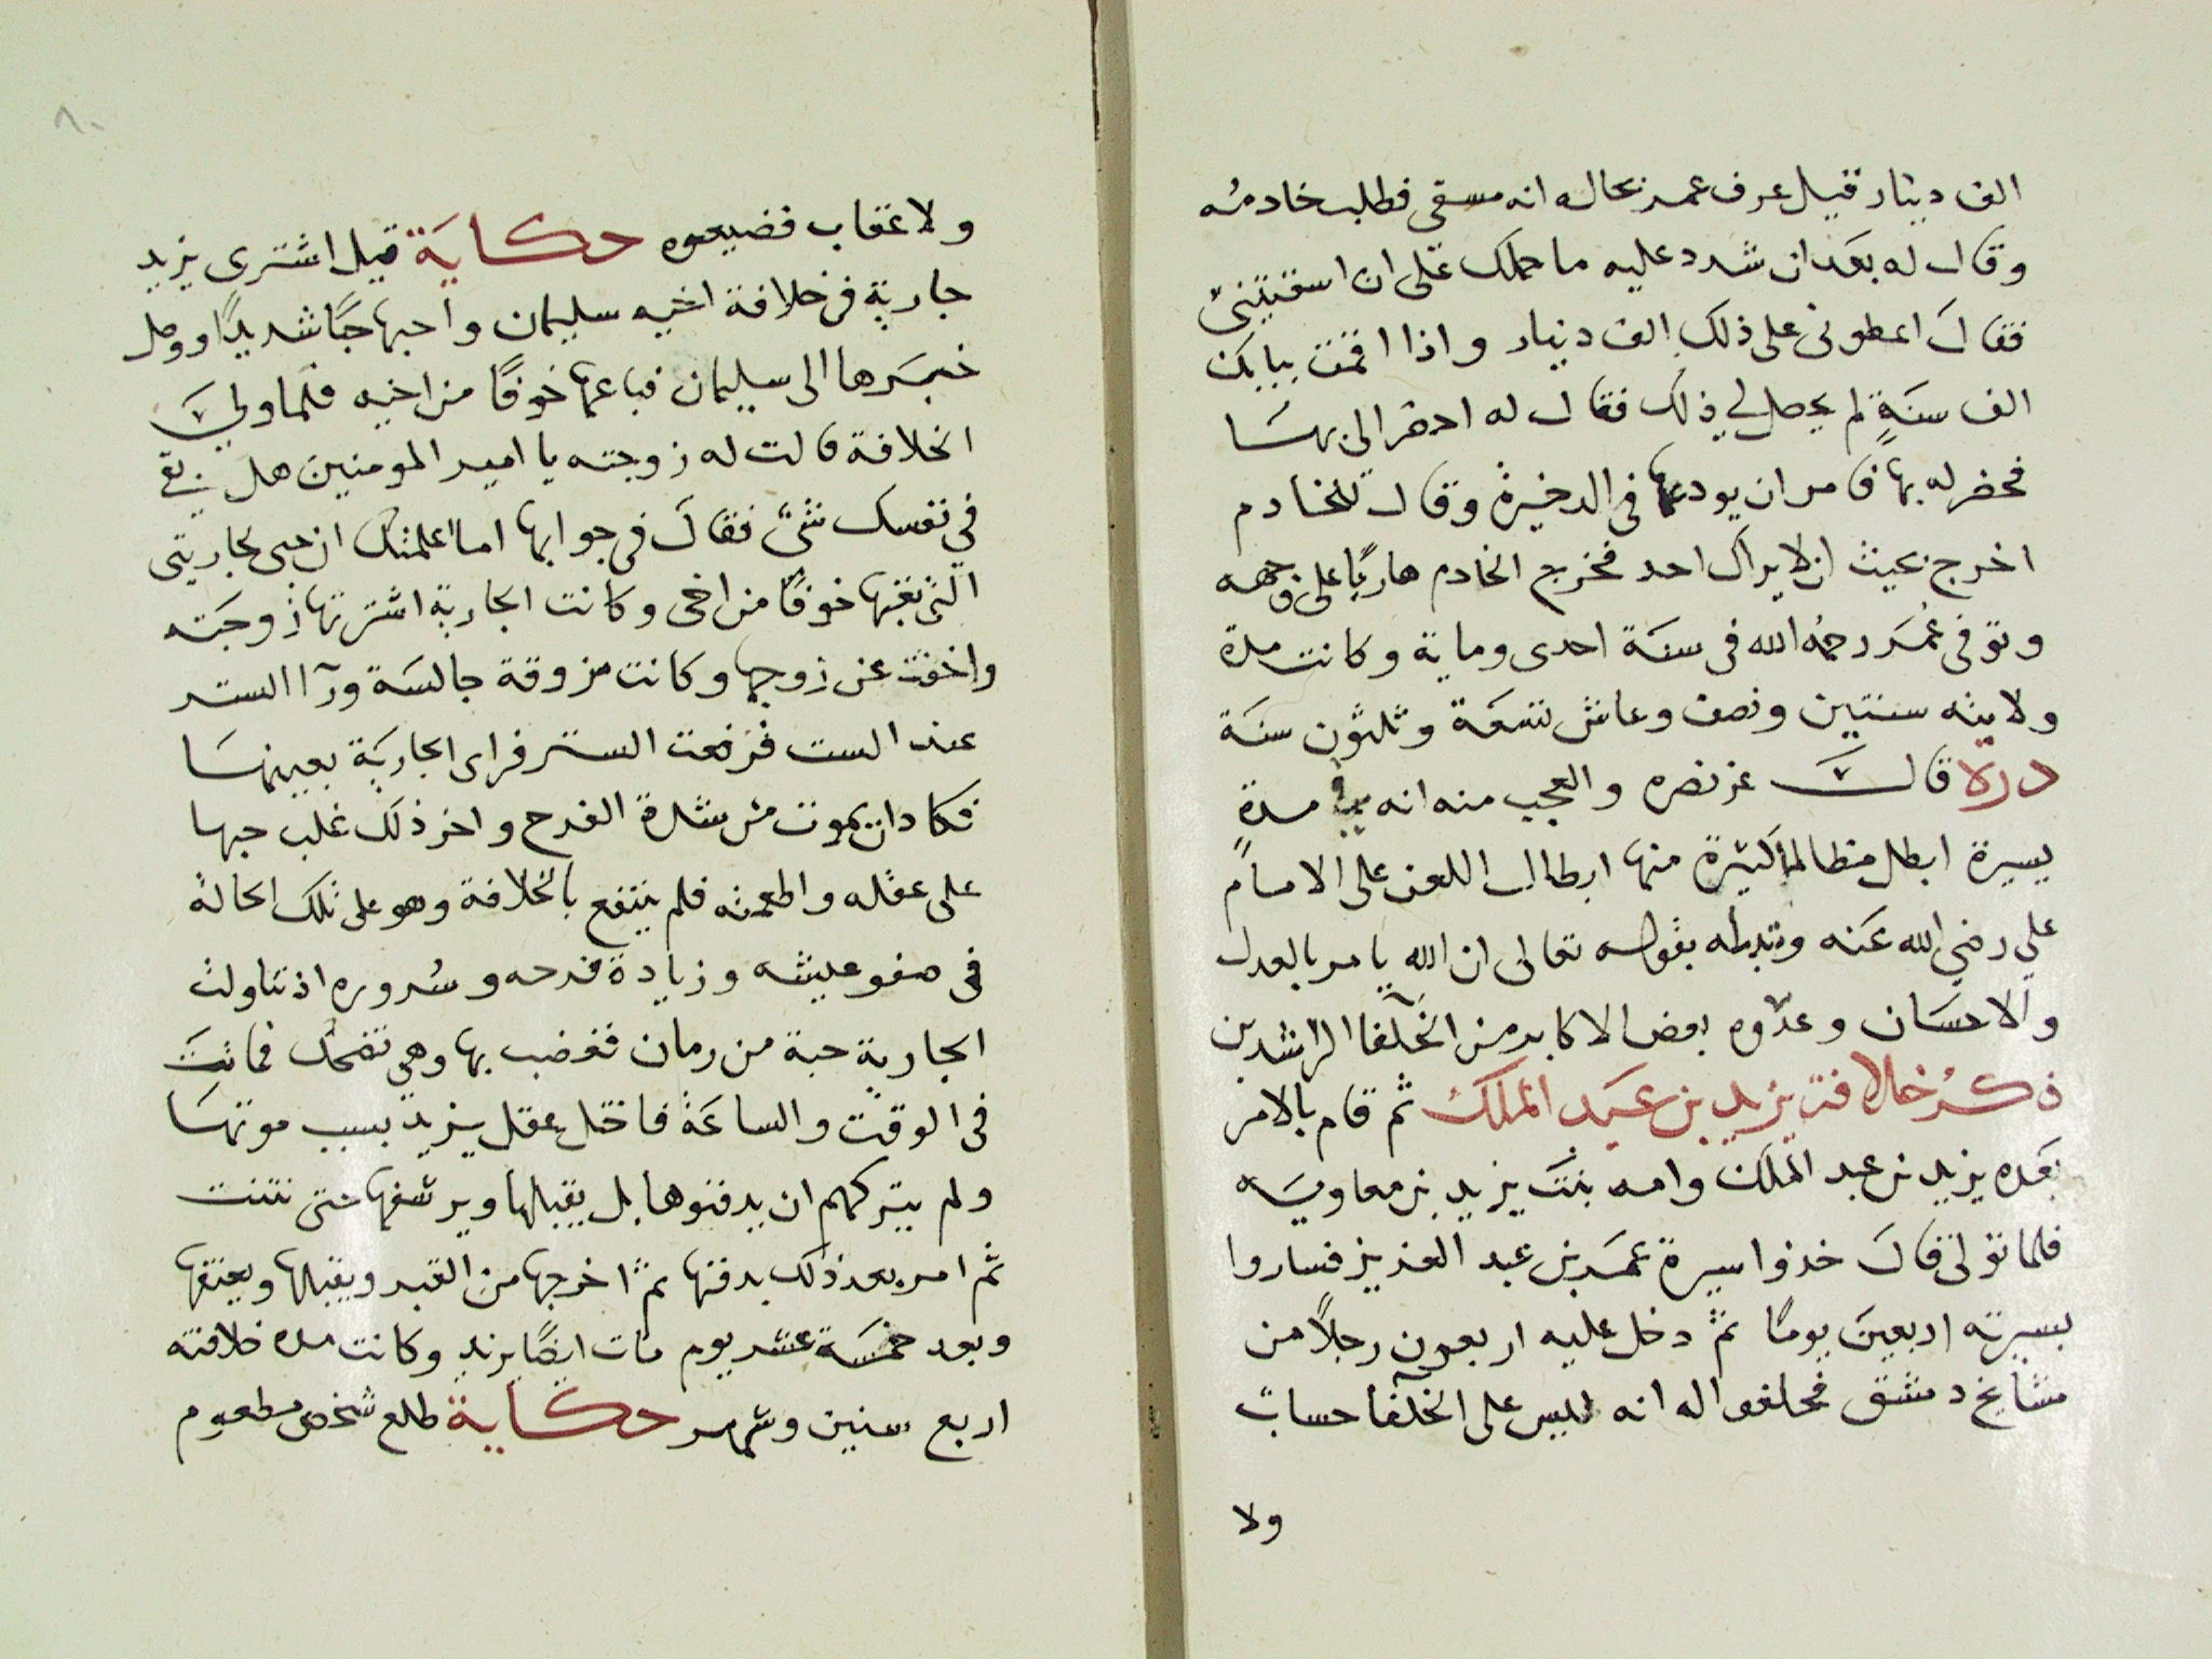 الف دينار قيل عرف عمر بحاله انه مسقى فطلب خادمُه
وقال له بعد ان شدد عليه ما حملك على ان اسقيتنى
فقال اعطونى على ذلك الف دينار واذا اقمت ببابك
الف سنةٍ لم يحصل لي ذلك فقال له احضر الى بها
فحضر له بها فامر ان يودعها فى الدخيرة وقال للخادم
اخرج بحيث ان لا يراك احد فخرج الخادم هاربًا على وجهه
وتوفى عُمَر رحمهُ الله فى سنة احدى وماية وكانت مدة
ولايته سنتين ونصف وعاش تسعة وثلثون سنة
درة قالت عز نصره والعجب منه انه في مدةٍ
يسيرة ابطل مظالمًا كثيرة منها ابطال اللعن على الامام
علي رضي الله عنه وتبدله بقوله تعالى ان الله يامر بالعدل
والاحسان وعدّوه بعض الاكابر من الخلفآ الراشدين
ذكرُ خلافة يزيد بن عبد الملك ثم قام بالامر
بعده يزيد بن عبد الملك وامه بنت يزيد بن معاويه
فلما تولى قال خذوا سيرة عمر بن عبد العزيز فساروا
بسيرته اربعين يومًا ثمّ دخل عليه اربعون رجلًا من
مشايخ دمشق فحلفوا له انه ليس على الخلفآ حساب
ولا
ولا عقاب فضيعوه حكاية قيل اشترى يزيد
جارية فى خلافة اخيه سليمان واحبها حبًا شديدًا ووصل
خبرها الى سليمان فباعها خوفًا من اخيه فلما ولى
الخلافة قالت له زوجته يا امير المومنين هل بقى
في نفسك شئ فقال فى جوابها اما اعلمتك ان حبى لجاريتى
التى بعتها خوفًا من اخى وكانت الجارية اشترتها زوجته
واخفت عن زوجها وكانت مزوقة جالسة ورآ الستر
عند الست فرفعت الستر فراى الجارية بعينها
فكاد ان يموت من شدة الفرح واخر ذلك غلب حبها
على عقله واطمعته فلم ينتفع بالخلافة وهو على تلك الحالة
فى صفو عيشه وزيادة فرحه وسُروره اذ تناولت
الجارية حبة من رمان فغضب بها وهى تضحك فماتت
فى الوقت والساعة فاختل عقل يزيد بسبب موتها
ولم يتركهم ان يدفنوها بل يقبلها ويرشفها حتى نتنت
ثم امر بعد ذلك بدفنها ثمّ اخرجها من القبر ويقبلها ويعنقها
وبعد خمسة عشر يوم مات ايضًا يزيد وكانت مده خلافته
اربع سنين وشهر حكاية طلع شخص مطعوم
٨٠